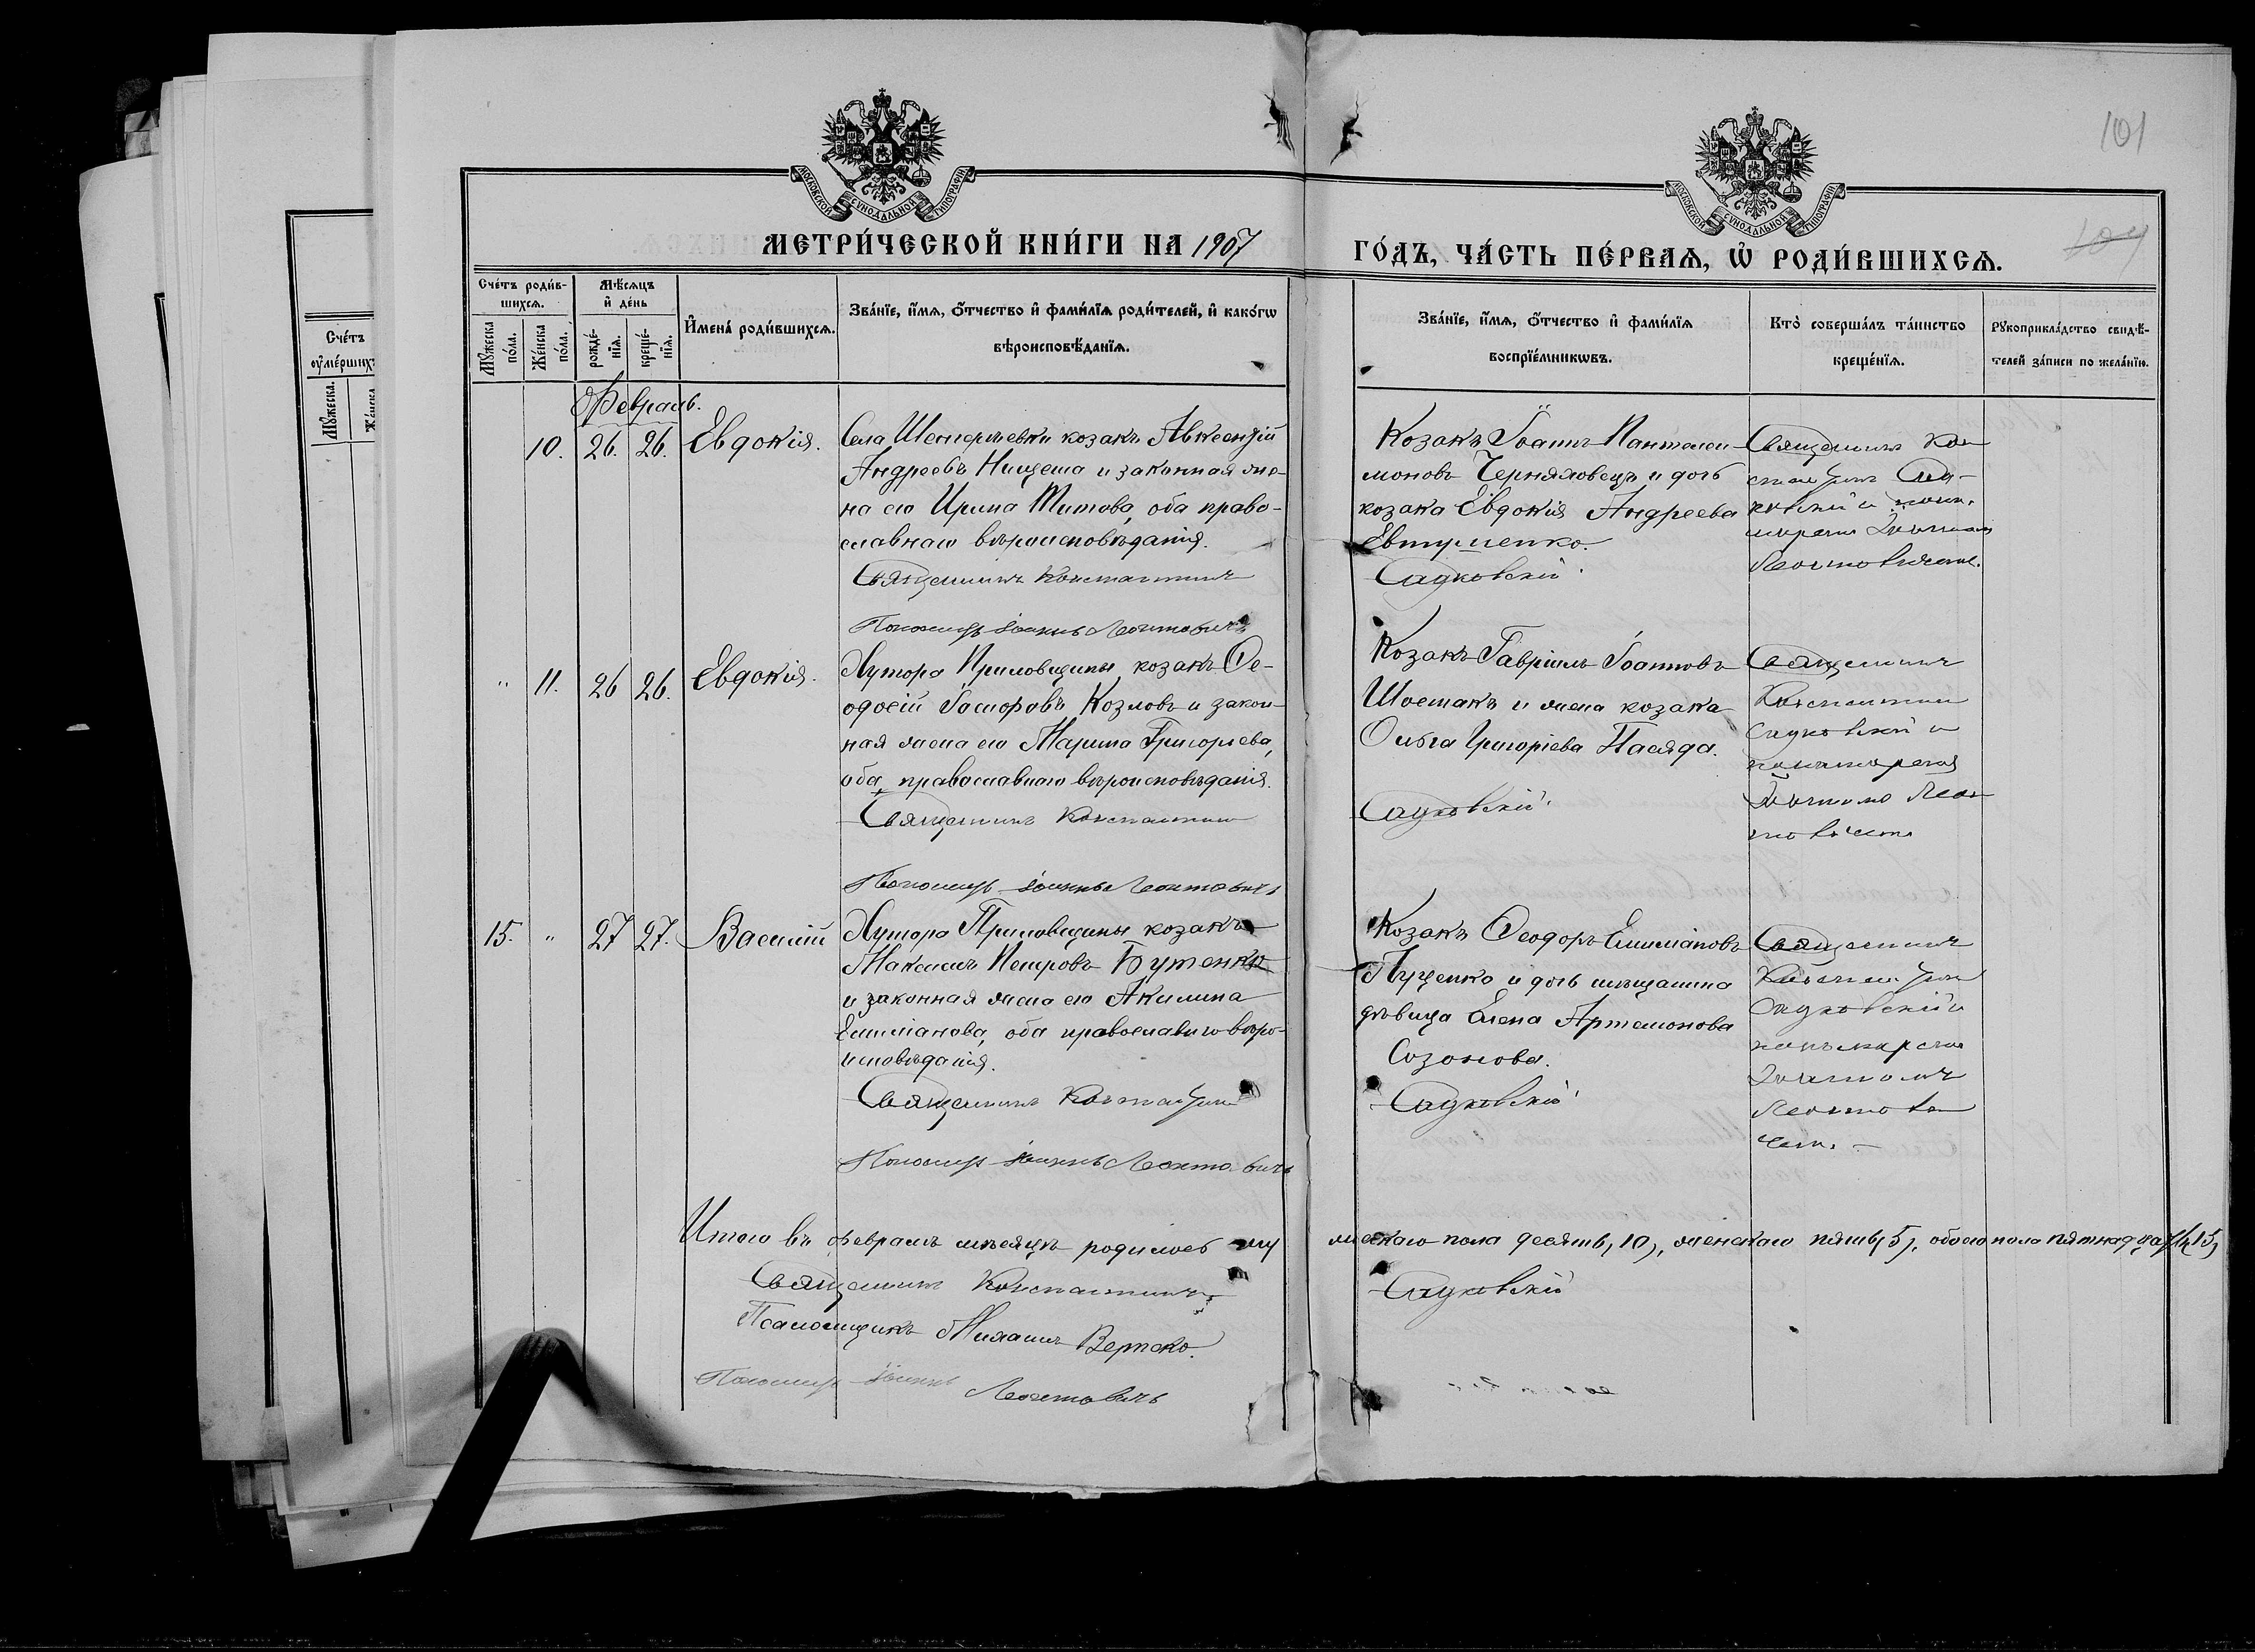 101
104
МОСКОВСКОЙ СУНОДАЛЬНОЙ ТИПОГРАФІИ
МОСКОВСКОЙ СУНОДАЛЬНОЙ ТИПОГРАФІИ
МЕТРИ́ЧЕСКОЙ КНИ́ГИ НА 1907
ГО́ДЪ, ЧА́СТЬ ПЕ́РВАѦ, Ѡ҆ РОДИ́ВШИХСѦ.
Сче́тъ
ᲂу҆ме́рших
Мꙋ́жеска.
Же́нска
Сче́тъ роди́в-
шихсѧ.
Мꙋ́жеска
по́ла.
Же́нска
по́ла.
Мѣ́сѧцъ
и҆ де́нь
рожде́-
нїѧ.
креще́-
нїѧ.
И҆мена̀ роди́вшихсѧ.
Зва́нїе, и҆́мѧ, ѻ҆́тчество и҆ фами́лїѧ роди́телей, и҆ како́гѡ
вѣроисповѣ́данїѧ.
Зва́нїе, и҆́мѧ, ѻ҆́тчество и҆ фами́лїѧ
воспрїе́мникѡвъ.
Кто̀ соверша́лъ та́инство
креще́нїѧ.
Рꙋкоприкла́дство свидѣ́-
телей за́писи по жела́нїю.
Февраль.
10. 26. 26. Евдокія.
Села Шенгеръевки козакъ Авксентій
Андреевъ Нищета и законная же-
на его Ирина Титова, оба право-
славнаго вѣроисповѣданія.
Священникъ Константинъ
Пономарь Іоаннъ Леонтовичъ
Козакъ Іоаннъ Пантелеи-
моновъ Черняховецъ и дочь
козака Евдокія Андреева
Евтушенко.
Садковскій
Священникъ Кон-
стантинъ Сад-
ковскій и поно-
маремъ Іоанномъ
Леонтовичемъ.
" 11. 26 26. Евдокія.
Хутора Приловщины козакъ Ѳе-
одосій Іосифовъ Козловъ и закон-
ная жена его Марина Григорьева,
оба православнаго вѣроисповѣданія.
Священникъ Константинъ
Пономарь Іоаннъ Леонтовичъ
Козакъ Гавріилъ Іоанновъ
Шостакъ и жена козака
Ольга Григоріева Пасяда.
Садковскій
Священникъ
Константинъ
Садковскій и
пономаремъ
Іоанномъ Леон-
товичемъ
15. " 27 27. Василій
Хутора Приловщины козакъ
Максимъ Петровъ Бутенко
и законная жена его Акилина
Емиліанова, оба православнаго вѣро-
исповѣданія.
Священникъ Константинъ
Пономарь Іоаннъ Леонтовичъ
Козакъ Ѳеодоръ Емиліановъ
Луценко и дочь мѣщанина
дѣвица Елена Артемонова
Созонова.
Садковскій
Священникъ
Константинъ
Садковскій и
пономаремъ
Іоанномъ
Леонтови-
чемъ. –
Итого въ февралѣ мѣсяцѣ родилось му
жескаго пола десять, 10), женскаго пять(5), обоего пола пятнадцать(15)
Священникъ Константинъ
Садковскій
Псаломщикъ Михаилъ
Пономарь Іоаннъ
Леонтовичъ